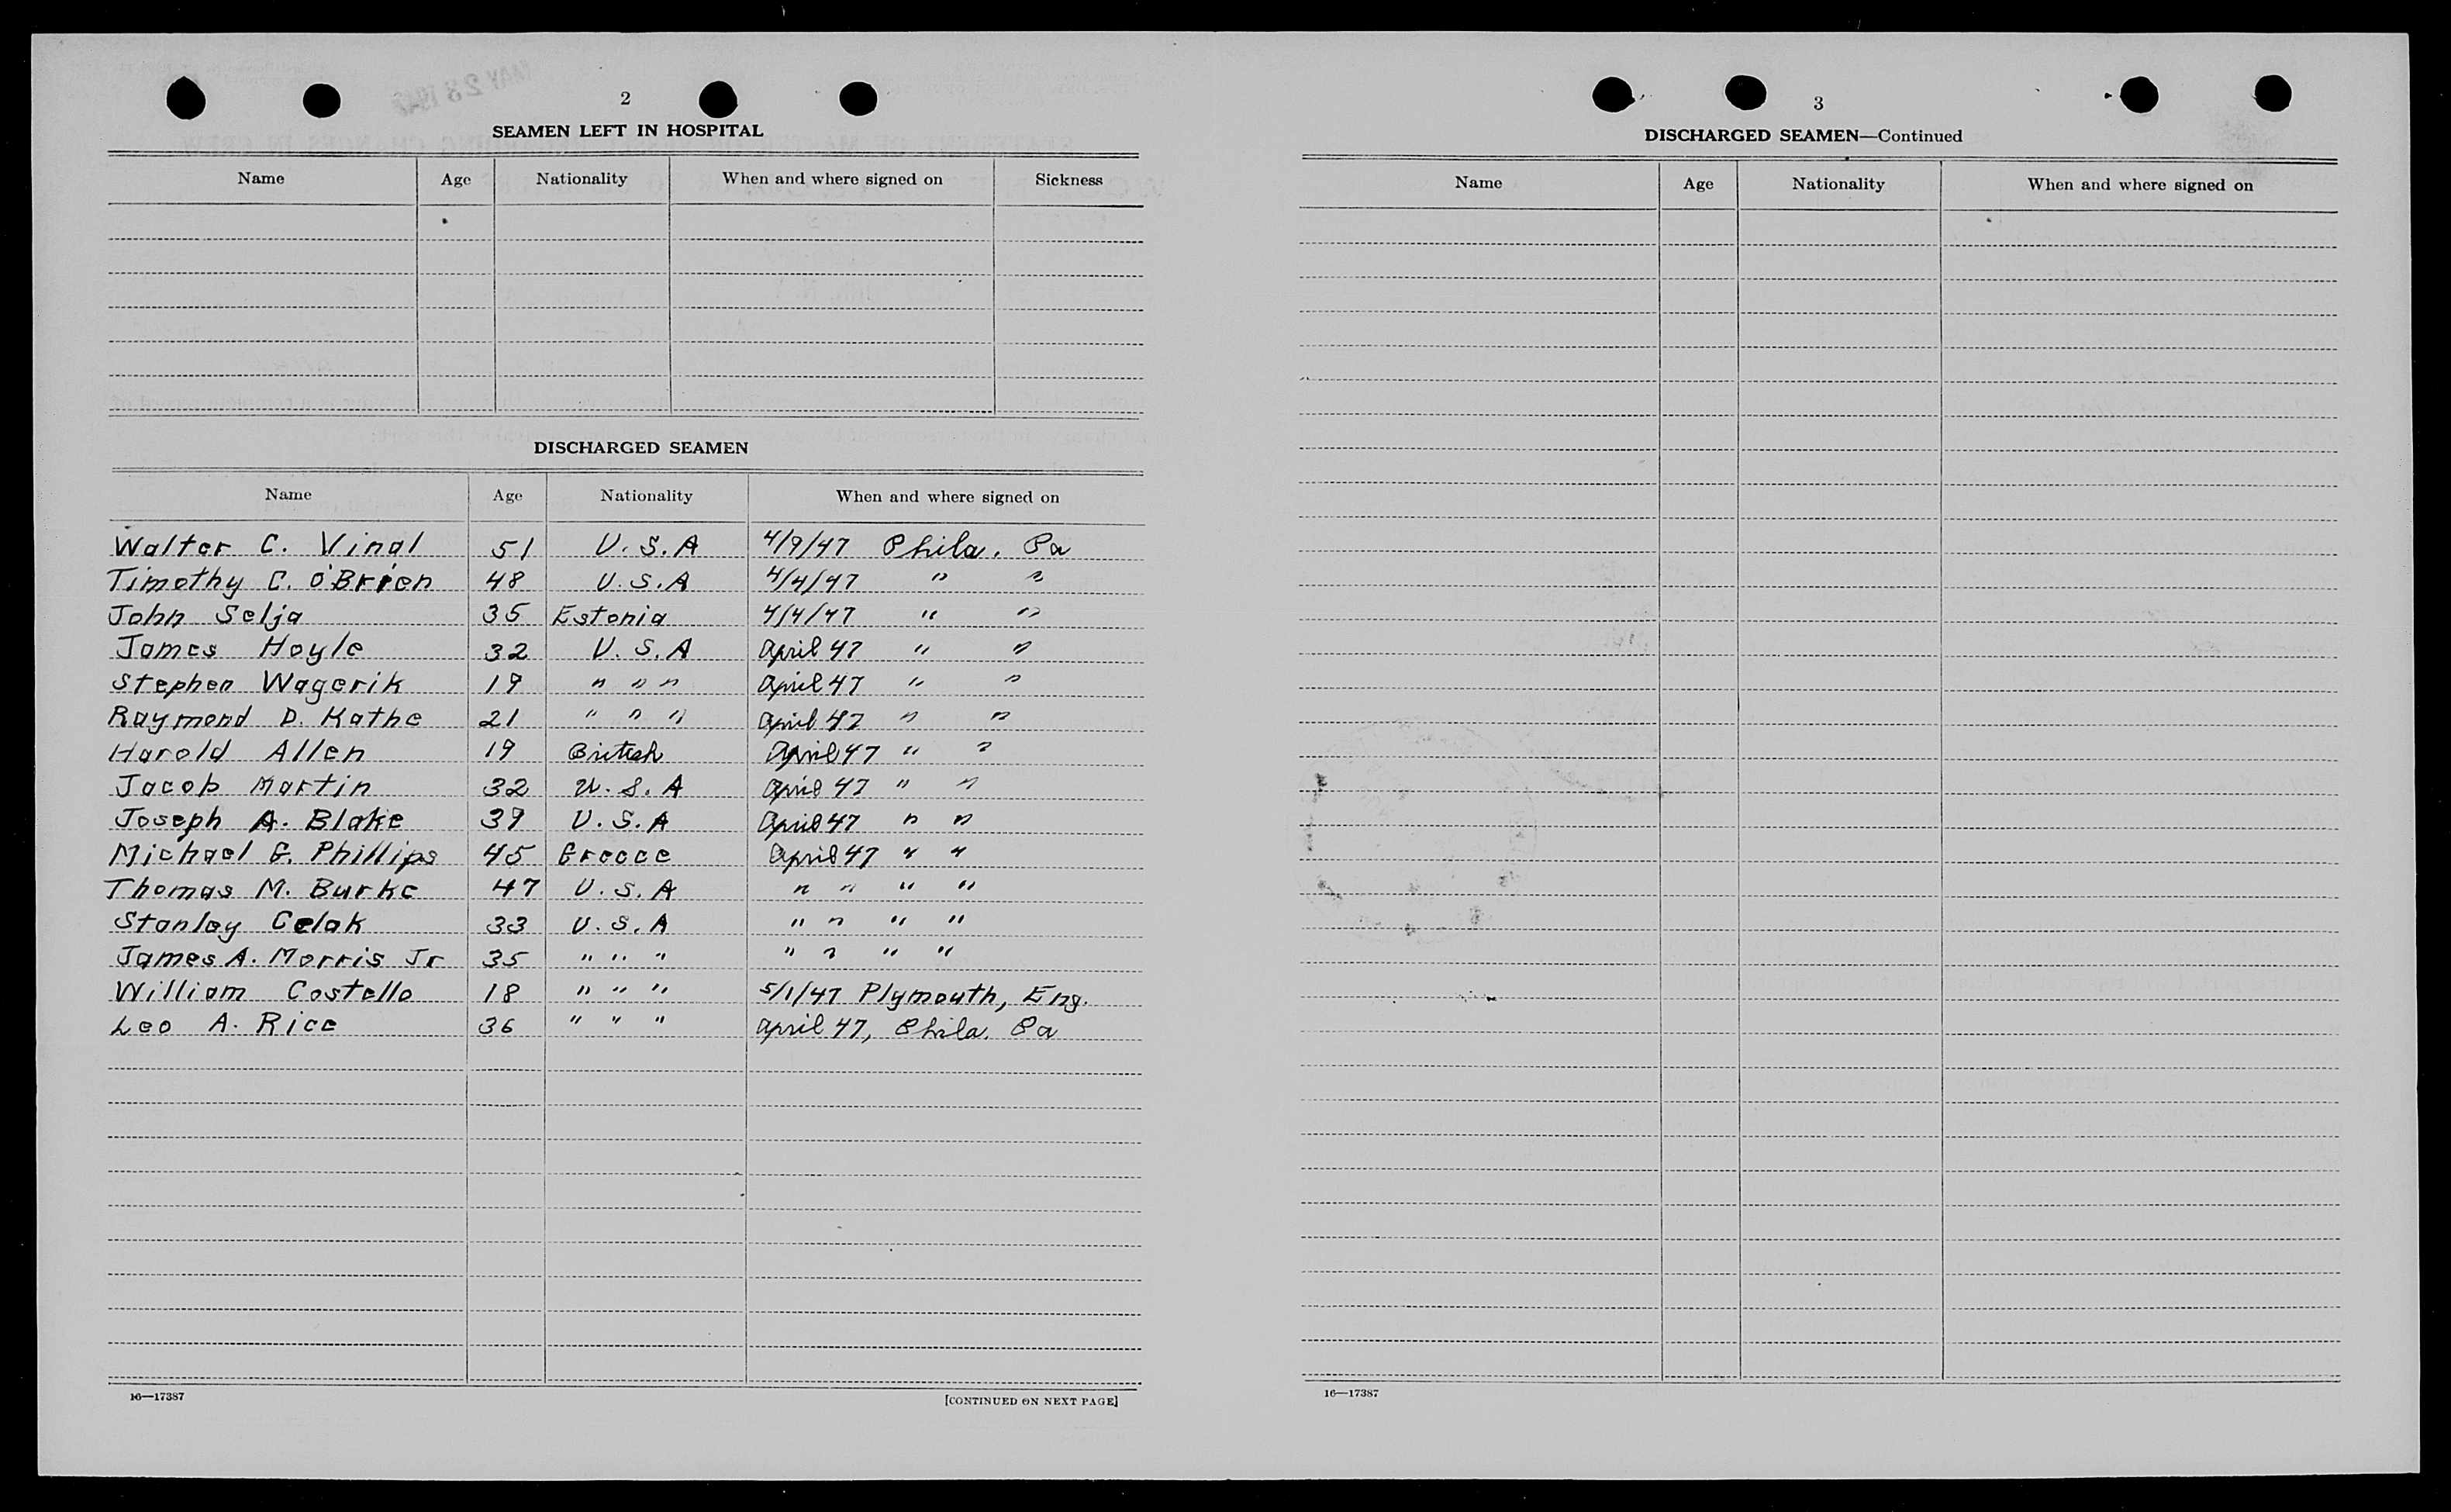 2
SEAMEN LEFT IN HOSPITAL
Name Age Nationality When and where signed on Sickness
DISCHARGED SEAMEN
Name Age Nationality When and where signed on
Walter C. Vinal 51 U.S.A 4/9/47 Phila. Pa
Timothy C. O'Brien 48 U.S.A 4/4/47 " "
John Selja 35 Estonia 4/4/47 " "
James Hoyle 32 U.S.A April 47 " "
Stephen Wagerik 19 " " " April 47 " "
Raymond D. Kathe 21 " " " April 47 " "
Harold Allen 19 British April 47 " "
Jacob Martin 32 U.S.A April 47 " "
Joseph A. Blake 39 U.S.A April 47 " "
Michael G. Phillips 45 Greece April 47 " "
Thomas M. Burke 47 U.S.A " " " "
Stanley Celak 33 U.S.A " " " "
James A. Morris Jr 35 " " " " " " "
William Costello 18 " " " 5/1/47 Plymouth, Eng.
Leo A. Rice 36 " " " April 47, Phila. Pa
16—17387
[CONTINUED ON NEXT PAGE]
3
DISCHARGED SEAMEN—Continued
Name Age Nationality When and where signed on
16—17387